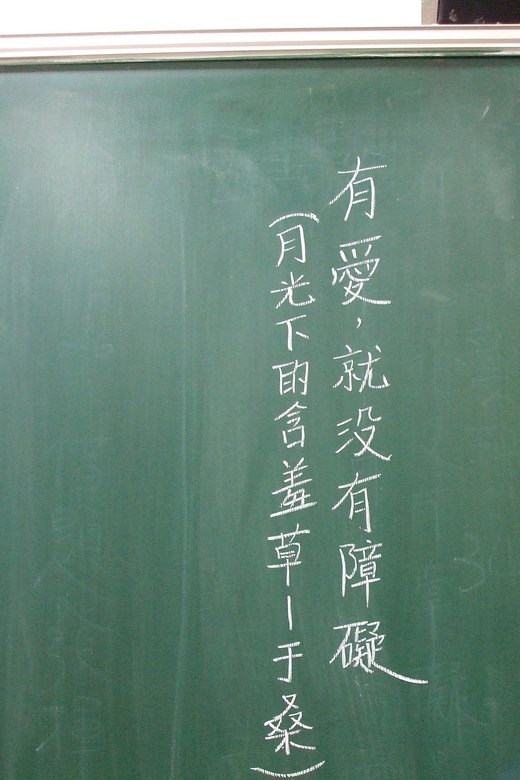 有愛，就没有障礙
(月光下的含羞草—于桑)